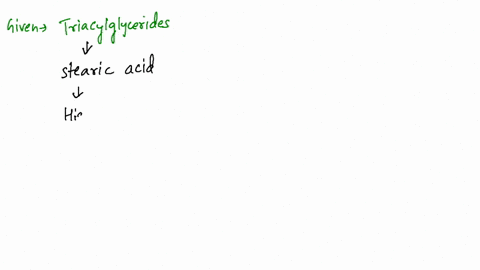 Given→ Triacylglycerides
↓
stearic acid
↓
Hi